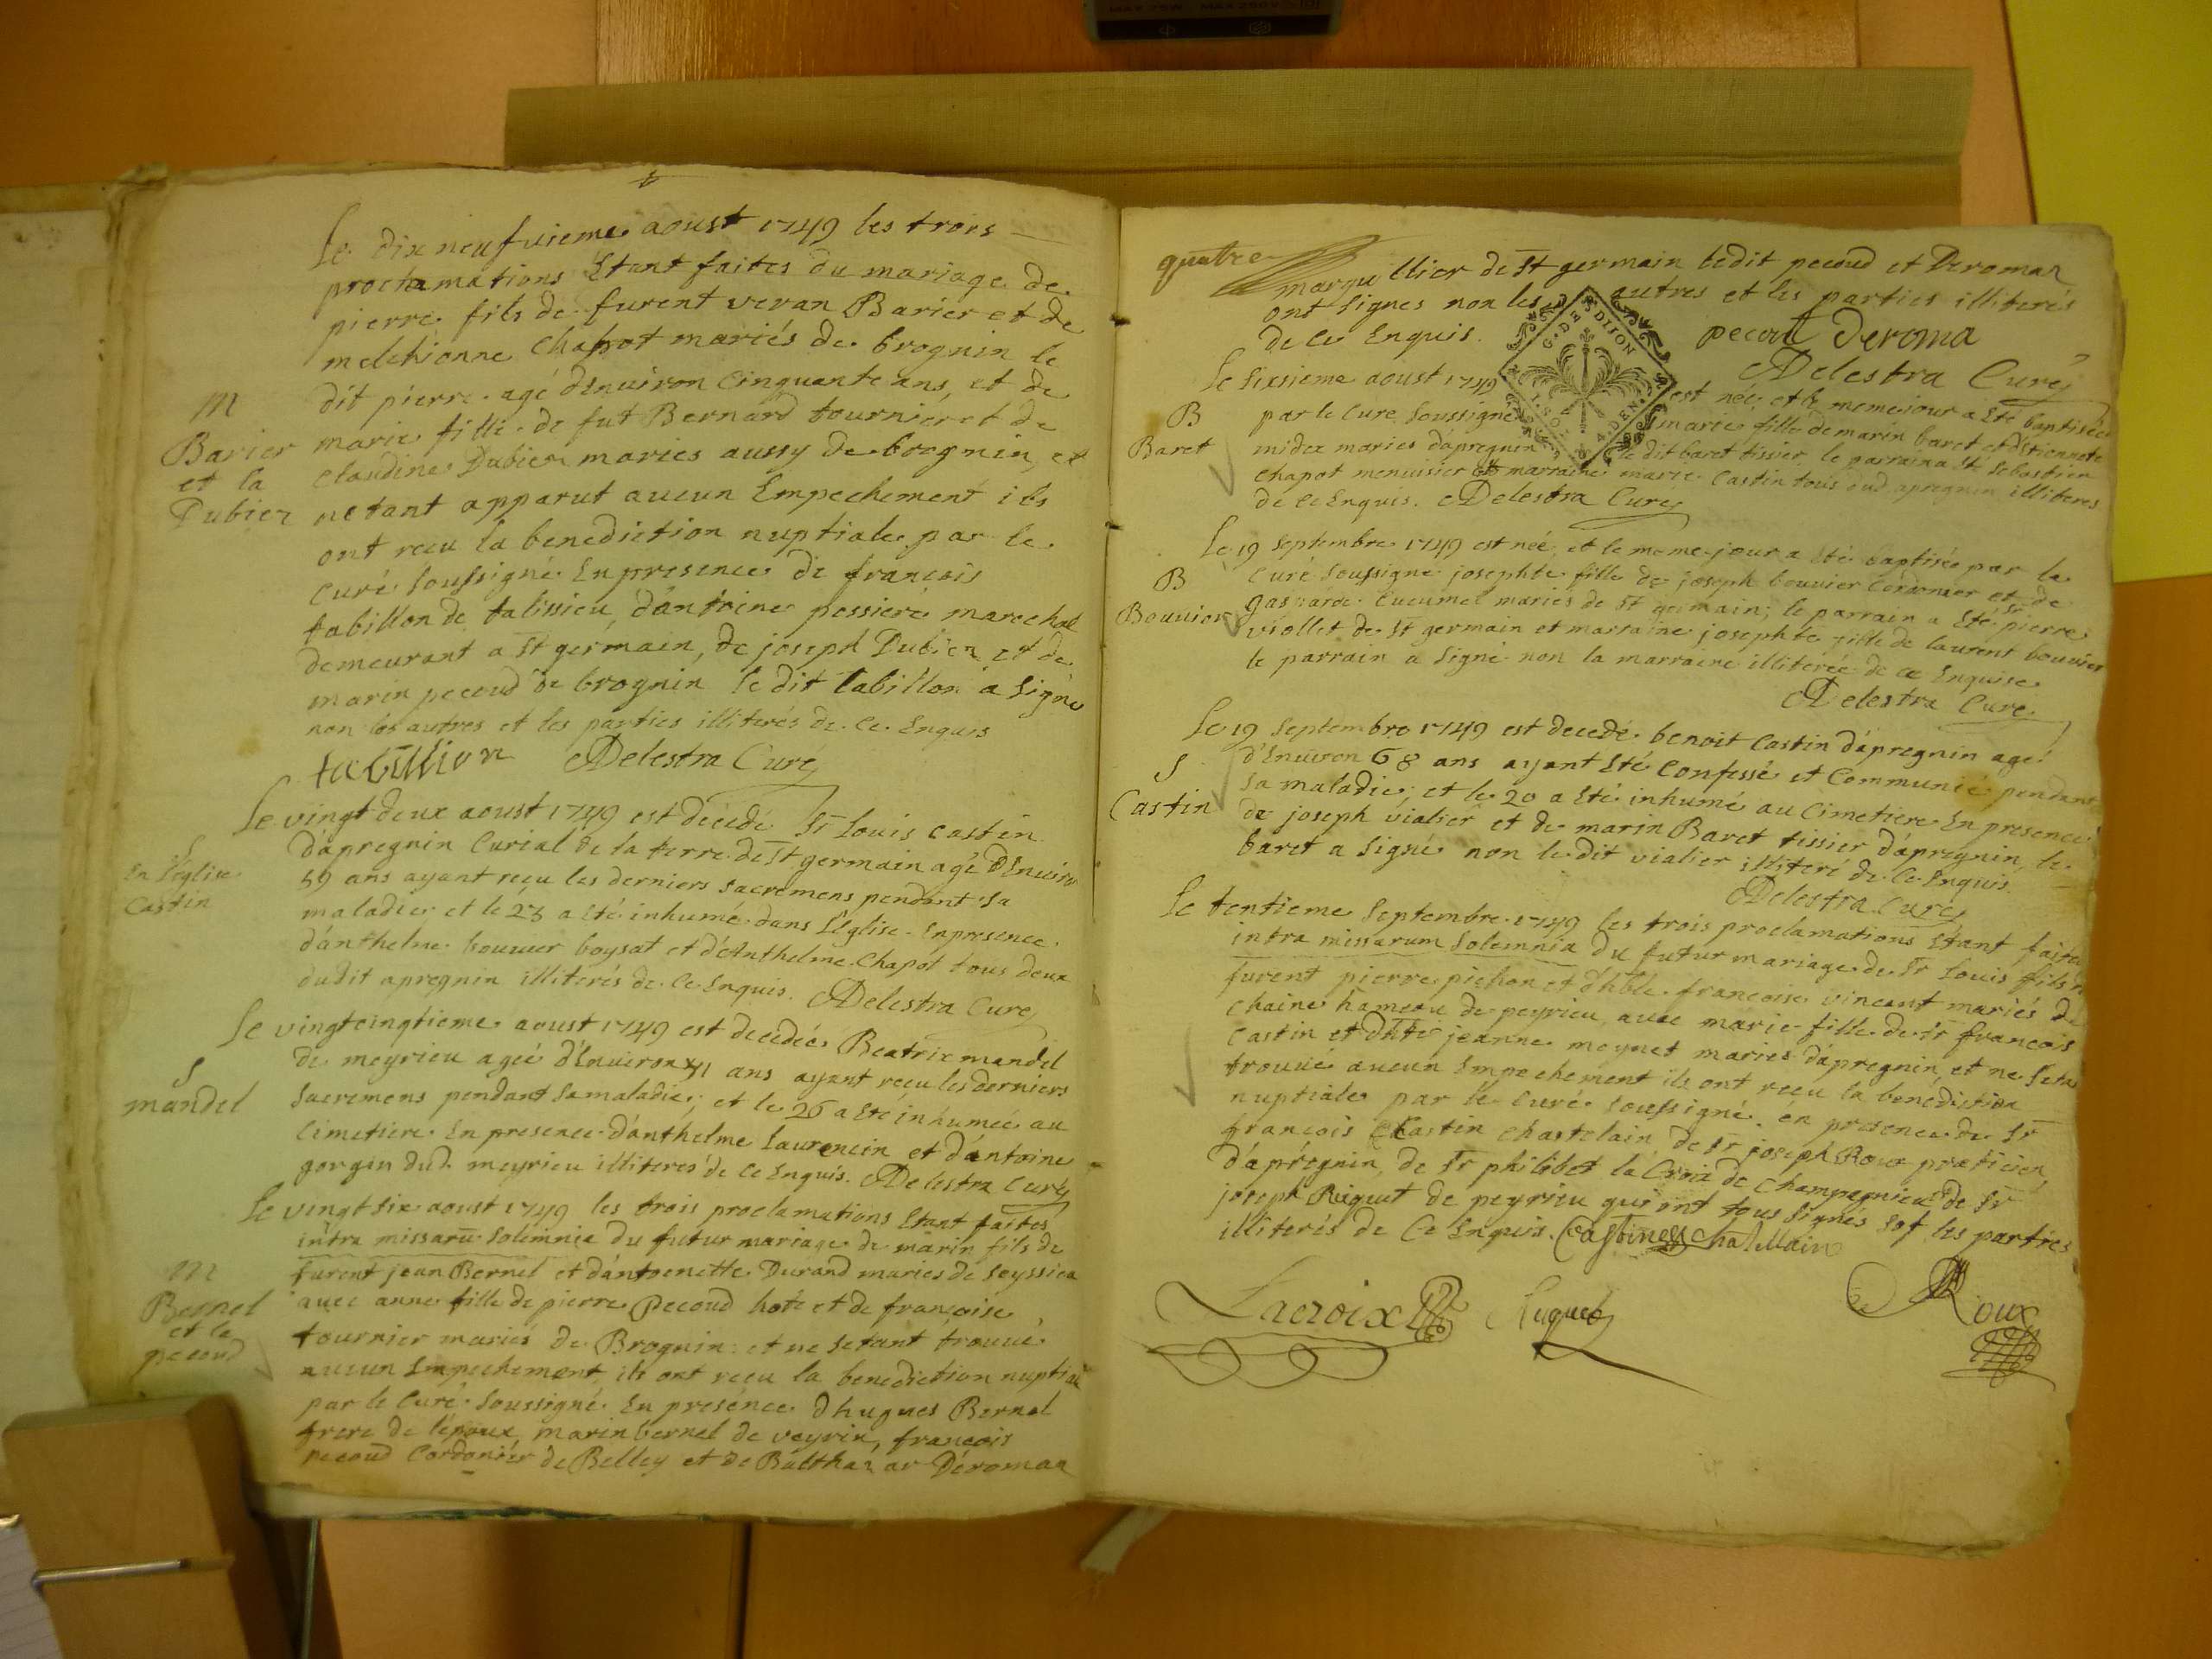 Le dix neufuieme aoust 1749 les trois
proclamations Etant faites du mariage de
pierre fils de furent veran Barier et de
melchionne Chapot mariés de brognin le
dit pierre agé dEnuiron Cinquante ans, et de
M
Barier
et la
Dubier
marie fille de fut Bernard tournier et de
Claudine Dubier maries aussy de brognin, et
netant apparut aucun Empechement ils
ont recu la benediction nuptiale par le
Curé soussigné En presence de francois
tabillon de talissieu, d'antoine pessiere marechal
demeurant a St germain, de joseph Dubier et de
marin pecoud de brognin le dit tabillon a signé
non les autres et les parties illiterés de ce Enquis
tabillion Delestra Curé
Le vingt deux aoust 1749 est decedé Sr Louis castin
d'apregnin Curial de la terre de St germain agé dEnuiron
S
En l'église
Castin
59 ans ayant reçu les derniers sacremens pendant sa
maladie, et le 23 a Eté inhumé dans l'église En presence
d'anthelme bouvier boysat et d'Anthelme Chapot tous deux
dudit apregnin illiterés de ce Enquis. Delestra Curé
Le vingtcinqtieme aoust 1749 est decedée Beatrix mandel
de meyrieu ageé d'Enuiron ans ayant recu les derniers
S
mandel
sacremens pendant sa maladie; et le 26 a Eté inhumeé au
Cimetiere En presence d'anthelme Laurencin et d'antoine
gorgin dud. meyrieu illiteres de ce Enquis. Delestra Curé
Le vingt six aoust 1749 les trois proclamations Etant faites
intra missarū solemnia du futur mariage de marin fils de
M
Bernel
et la
pecoud
furent jean Bernel et d'antoenette Durand maries de
avec anne fille de pierre Pecoud hote et de francoise
tournier mariés de Brognin et ne setant trouvé
aucun Empechement, ils ont recu la benediction nuptiale
par le Curé soussigné En présence dhugues Bernel
frere de l'époux, marin bernel de veyrin, francois
pecoud Cordonier de Belley et de Balthazar Déroman
quatre
marguillier de St germain ledit pecoud et Deroman
ont signes non les autres et les parties illiterés
de ce Enquis.
pecout Deroma
Delestra Curé
G. DE DIJON
4. DEN.
B
Baret
Le sixsieme aoust 1749 est née et le meme jour a Eté baptisée
par le Curé soussigné marie fille de marin baret et d'Etiennete
midex mariés d'apregnin le dit baret tissier, le parrain a Eté sebastien
Chapot menuisier et marraine marie Castin tous dud apregnin illiteres
de ce Enquis. Delestra Curé
Le 19 septembre 1749 est neé et le meme jour a Eté baptisée par le
B
Bouuier
Curé soussigné josephte fille de joseph bouvier Cordonier et de
gasparde Cucumel mariés de St germain; le parrain a Eté Sr pierre
viollet de St germain et marraine josephte fille de laurent bouvier
le parrain a signé non la marraine illiterée de ce Enquise
Delestra Curé
Le 19 septembre 1749 est decedé benoit Castin d'apregnin agé
S
Castin
d'Enuiron 68 ans ayant Eté Confessé et Communié pendant
sa maladie; et le 20 a Eté inhumé au Cimetiere En presence
de joseph vialier et de marin Baret tissier d'apregnin, le
baret a signé non le dit vialier illiteré de ce Enquis
Delestra Curé
Le tentieme septembre 1749 les trois proclamations Etant faites
intra missarum solemnia du futur mariage de Sr Louis fils
furent pierre pichon et dhble francoise vincent mariés de
chaine hameau de peyrieu avec marie fille de Sr francois
Castin et dhte jeanne meynet maries d'apregnin, et ne seta
trouvé aucun Empechement ils ont recu la benediction
nuptiale par le Curé soussigné en presence de Sr
francois Castin chastelain de Sr joseph Roux praticien
d'apregnin, de Sr philibet la Croix de Champagnieu de Sr
joseph Ruguet de peyrieu qui ont tous signés sof les parties
illiterés de ce Enquis. Castin chatellain
Lacroix Ruguet Roux